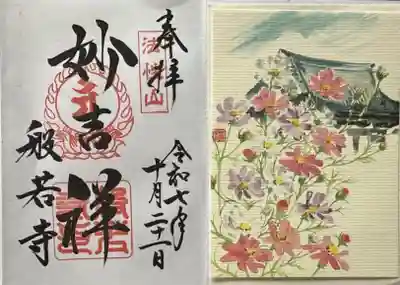 奉拝
法性山
令和七年
十月二十一日
妙吉祥
般若寺